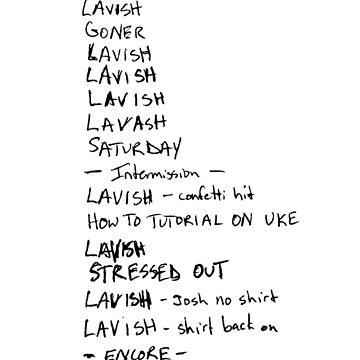 LAVISH
GONER
LAVISH
LAVISH
LAVISH
LAVASH
SATURDAY
- Intermission -
LAVISH - confetti hit
HOW TO TUTORIAL ON UKE
LAVISH
STRESSED OUT
LAVISH - Josh no shirt
LAVISH - shirt back on
- ENCORE -